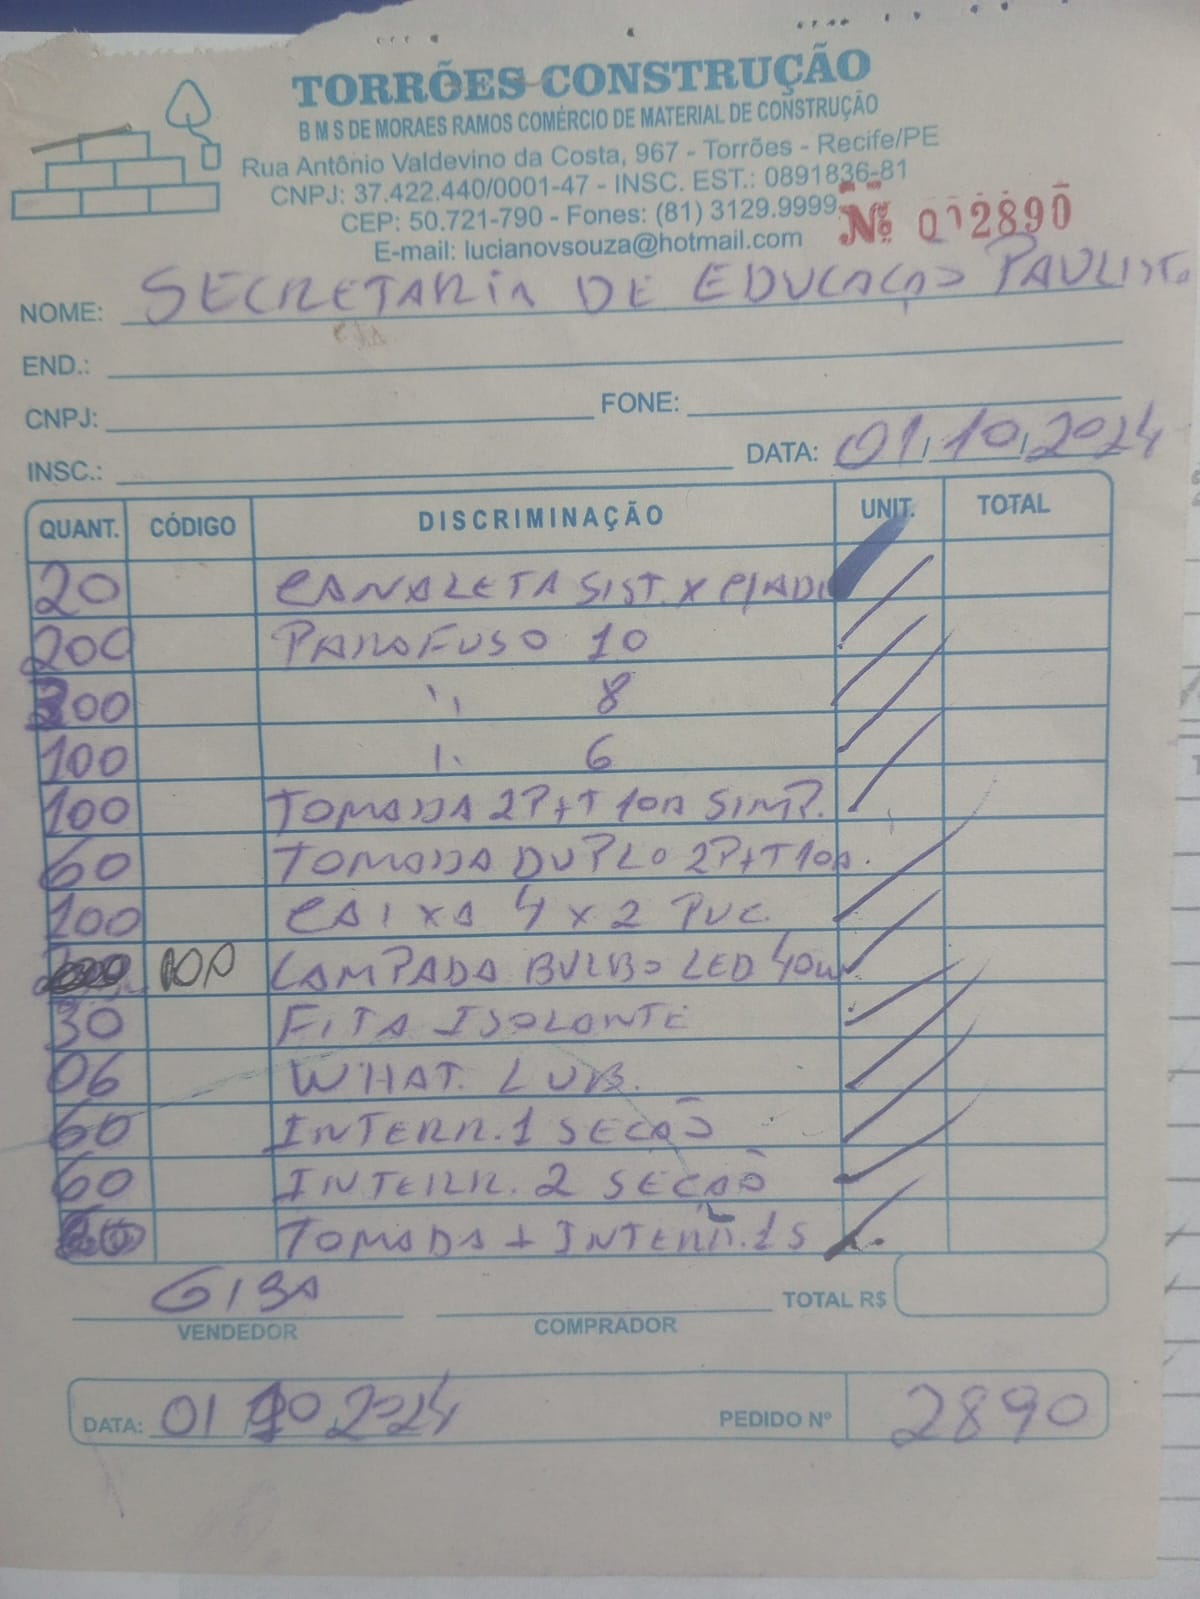 TORRÕES CONSTRUÇÃO
B M S DE MORAES RAMOS COMÉRCIO DE MATERIAL DE CONSTRUÇÃO
Rua Antônio Valdevino da Costa, 967 - Torrões - Recife/PE
CNPJ: 37.422.440/0001-47 - INSC. EST.: 0891836-81
CEP: 50.721-790 - Fones: (81) 3129.9999
E-mail: lucianovsouza@hotmail.com
Nº 012890
NOME: SECRETARIA DE EDUCAÇAO PAULISTA
END.:
CNPJ: FONE:
INSC.: DATA: 01/10/2024
QUANT. CÓDIGO DISCRIMINAÇÃO UNIT. TOTAL
20 CANALETA SIST. X P/ADE
200 PARAFUSO 10
200 " 8
100 " 6
100 TOMADA 2P+T 10A SIMP.
60 TOMADA DUPLO 2P+T 10A.
100 CAIXA 4x2 PVC.
LAMPADA BULBO LED 40W
30 FITA ISOLANTE
06 WHAT. LUB.
60 INTERR. 1 SECÃO
60 INTERR. 2 SECAÕ
TOMADA + INTERR. 1S
GIBA
VENDEDOR COMPRADOR TOTAL R$
DATA: 01 10 2024 PEDIDO Nº 2890